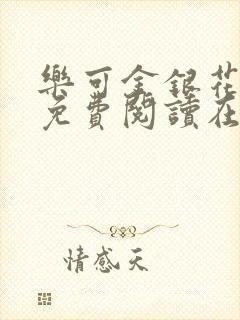 樂可金銀花
免費閱讀在
情感天